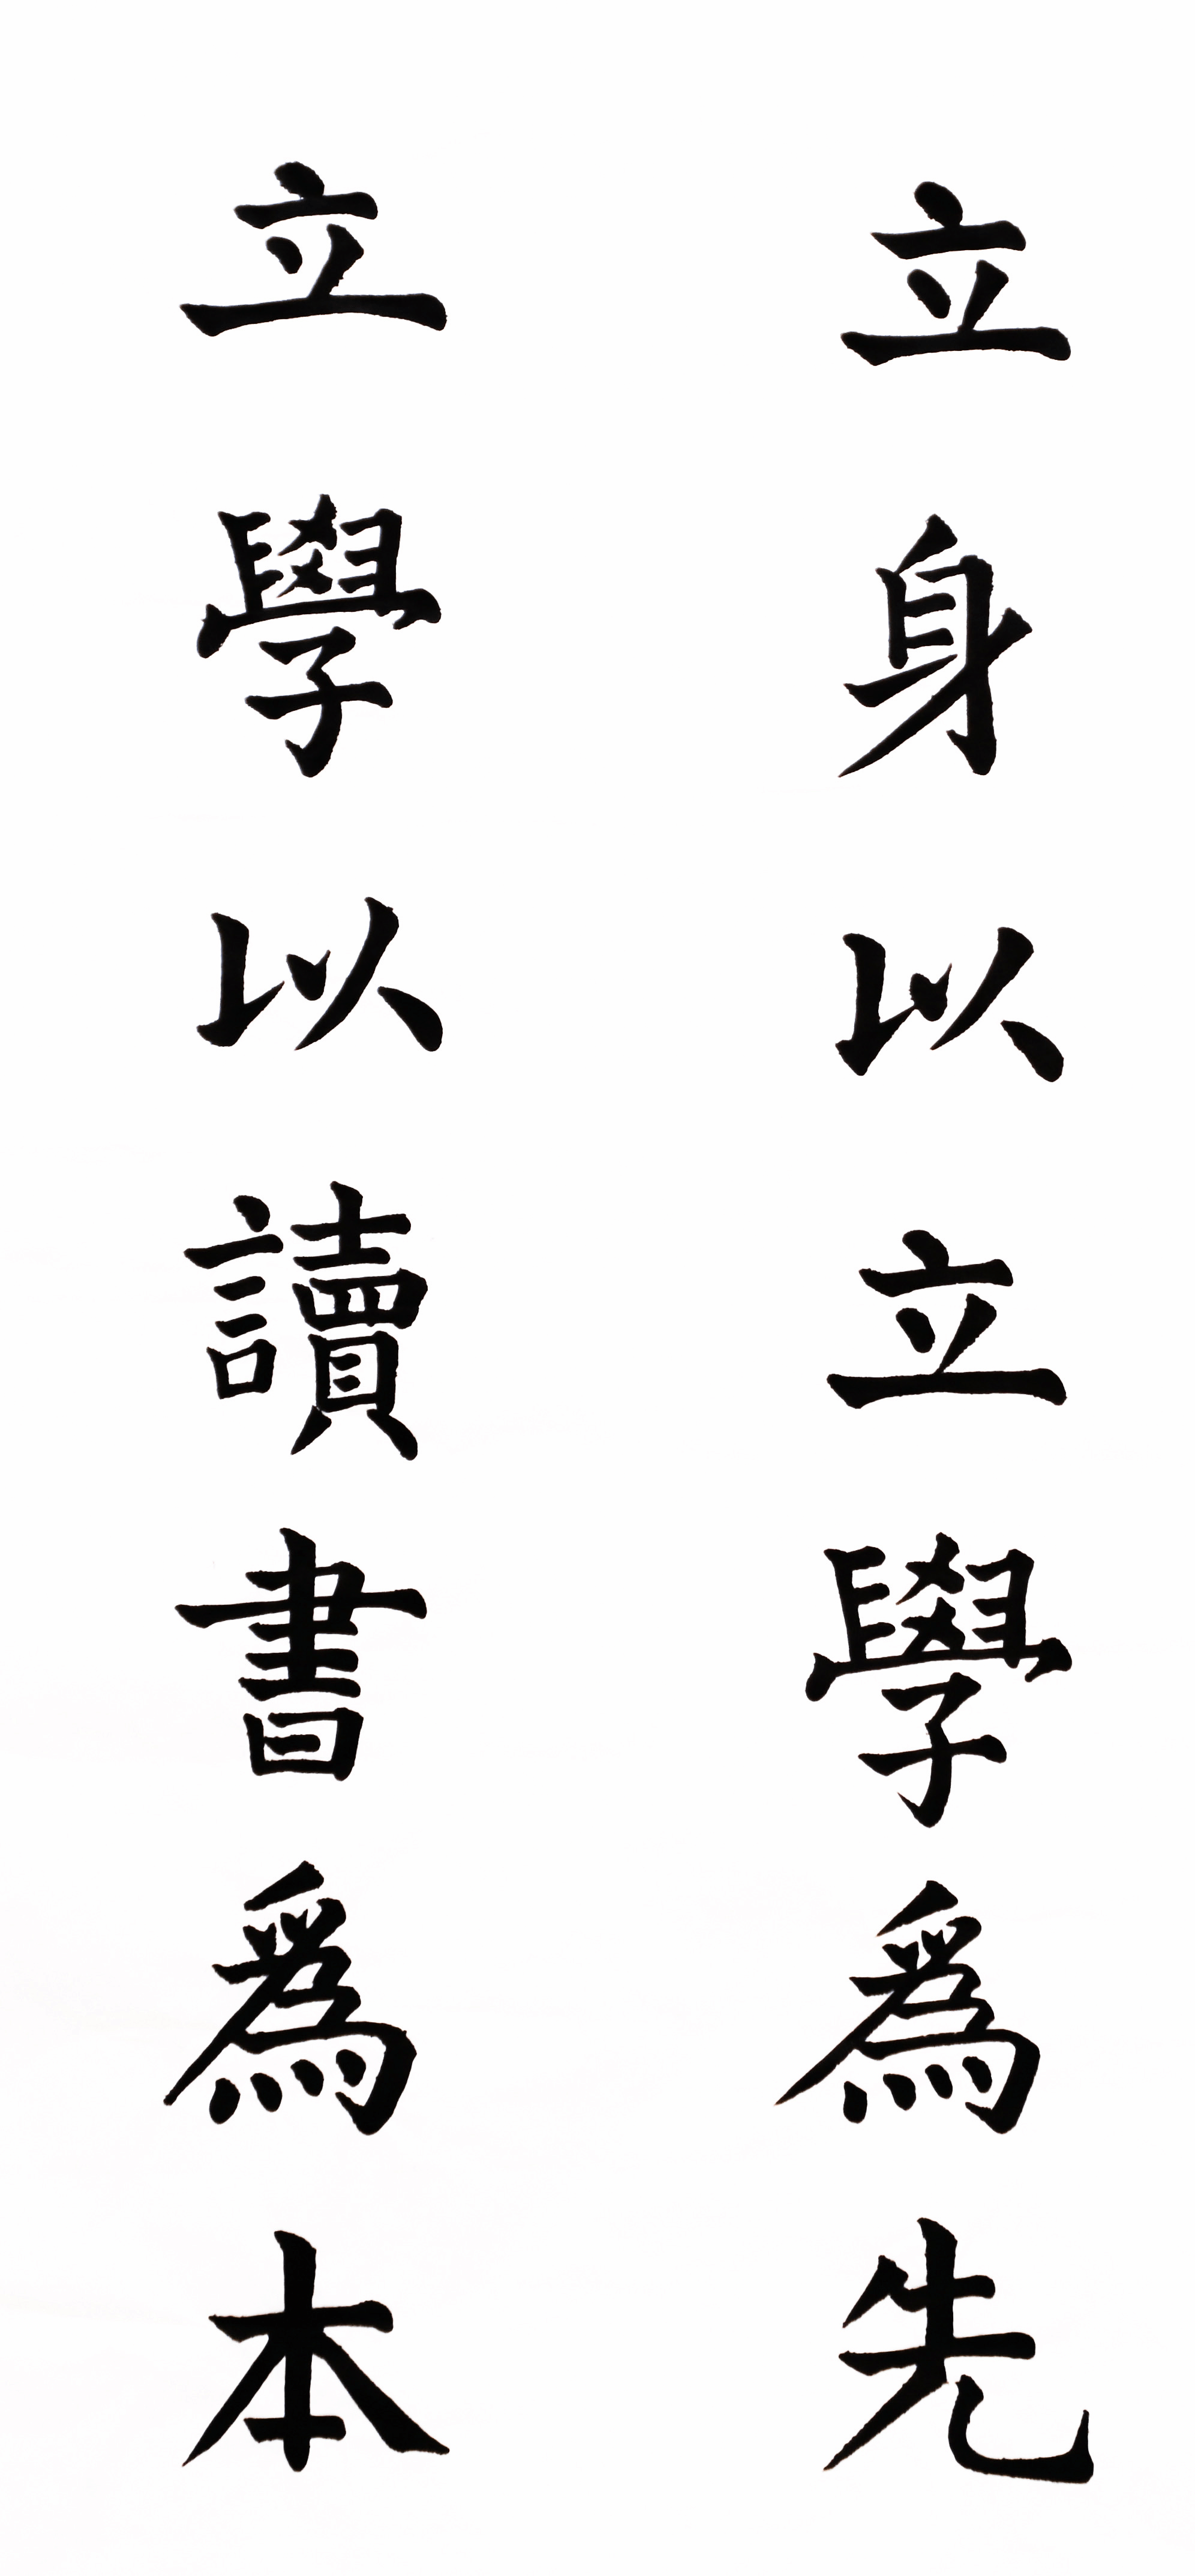 立身以立學爲先
立學以讀書爲本